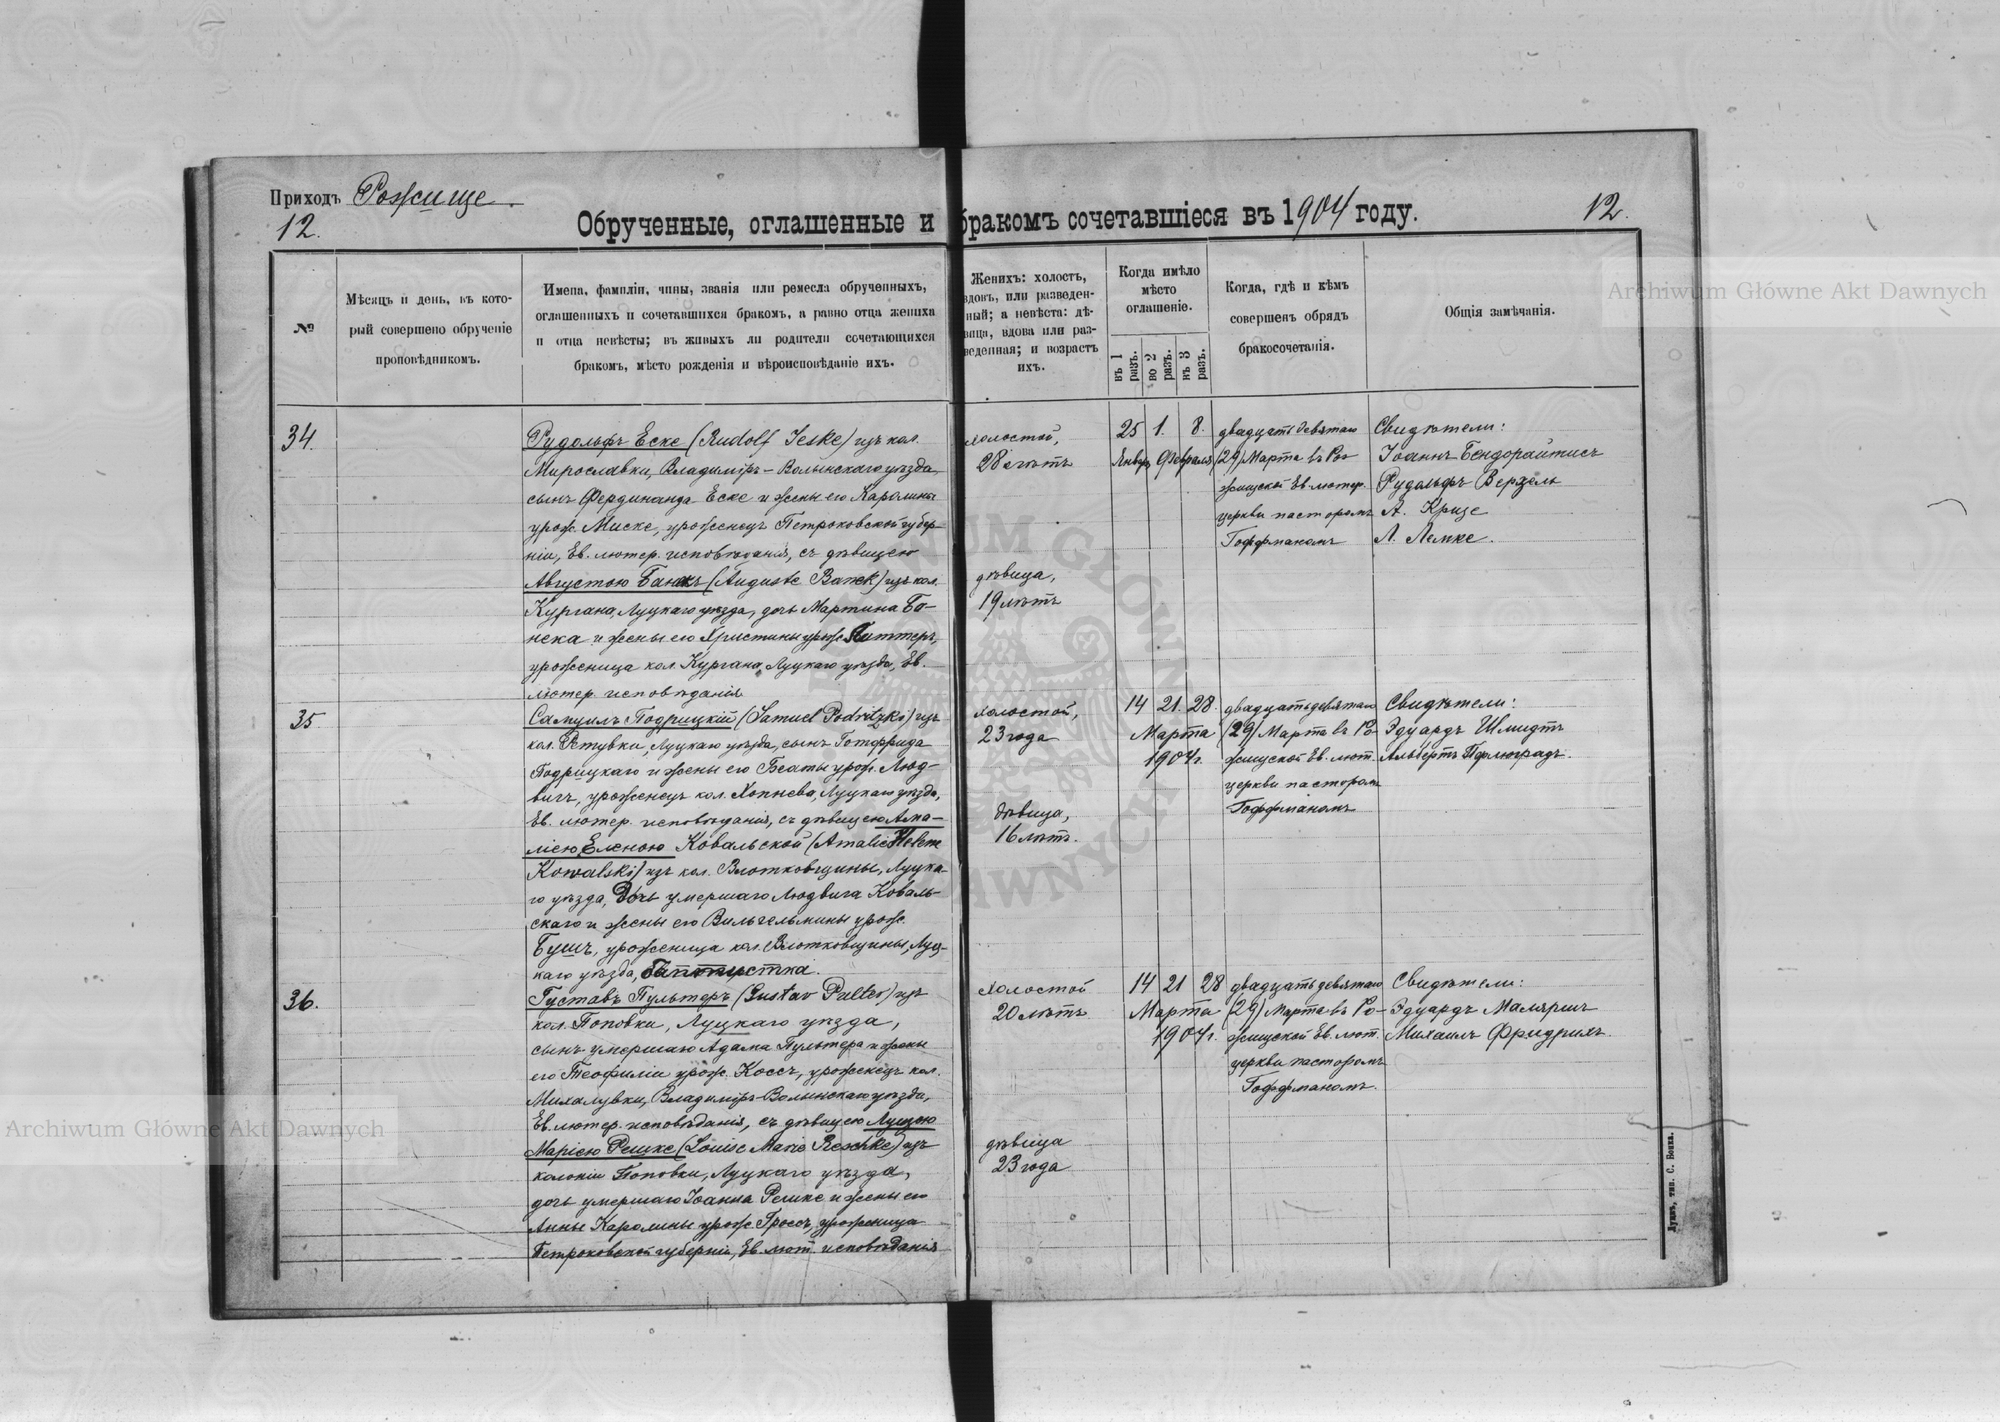 Приходъ Рожище.
12.
12.
Обрученные, оглашенные и бракомъ сочетавшіеся въ 1904 году.
№
Мѣсяцъ и день, въ кото-
рый совершено обрученіе
проповѣдникомъ.
Имена, фамиліи, чины, званія или ремесла обрученныхъ,
оглашенныхъ и сочетавшихся бракомъ, а равно отца жениха
и отца невѣсты; въ живыхъ ли родители сочетающихся
бракомъ, мѣсто рожденія и вѣроисповѣданіе ихъ.
Женихъ: холостъ,
вдовъ, или разведен-
ный; а невѣста: дѣ-
вица, вдова или раз-
веденная; и возрастъ
ихъ.
Когда имѣло
мѣсто
оглашеніе.
въ 1 разъ.
во 2 разъ.
въ 3 разъ.
Когда, гдѣ и кѣмъ
совершенъ обрядъ
бракосочетанія.
Общія замѣчанія.
34.
Рудольфъ Еске (Rudolf Jeske) изъ кол.
Мирославки, Владиміръ-Волынскаго уѣзда,
сынъ Фердинанда Еске и жены его Каролины
урож. Миске, уроженецъ Петроковской губер-
ніи, Ев. лютер. исповѣданія, съ дѣвицею
Августою Банекъ (Auguste Banek) изъ кол.
Кургана, Луцкаго уѣзда, дочь Мартина Ба-
нека и жены его Христины урож.
уроженица кол. Кургана, Луцкаго уѣзда, Ев.
лютер. исповѣданія
холостой,
28 лѣтъ
дѣвица,
19 лѣтъ
25 1. 8.
Январ. Февраля
двадцать девятаго
(29) Марта въ Ро-
жищской Ев. лютер.
церкви пасторомъ
Гоффманомъ
Свидѣтели:
Іоаннъ Бендорайтисъ
Рудольфъ
А. Кризе
Л. Лемке.
35
Самуилъ Подрицкій (Samuel Podritzki) изъ
кол. Луцкаго уѣзда, сынъ Готфрида
Подрицкаго и жены его Беаты урож. Люд-
вигъ, уроженецъ кол. Копчева, Луцкаго уѣзда,
Ев. лютер. исповѣданія, съ дѣвицею Ама-
ліею Еленою Ковальской (Amalie Helene
Kowalski) изъ кол. Луцка-
го уѣзда, дочь умершаго Людвига Коваль-
скаго и жены его Вильгельмины урож.
Бушъ, уроженица кол. Луц-
каго уѣзда, баптистка.
холостой,
23 года
дѣвица,
16 лѣтъ.
14 21. 28
Марта
1904 г.
двадцать девятаго
(29) Марта въ Ро-
жищской Ев. лют.
церкви пасторомъ
Гоффманомъ
Свидѣтели:
Эдуардъ Шмидтъ
Альбертъ
36.
Густавъ Пультеръ (Gustav Pulter) изъ
кол. Поповки, Луцкаго уѣзда,
сынъ умершаго Адама Пультера и жены
его Теофиліи урож. Коссъ, уроженецъ кол.
Михалувки, Владиміръ-Волынскаго уѣзда,
Ев. лютер. исповѣданія, съ дѣвицею Луизою
Маріею Решке (Louise Marie Reschke) изъ
колоніи Поповки, Луцкаго уѣзда,
дочь умершаго Іоанна Решке и жены его
Анны Каролины урож. Гроссъ, уроженица
Петроковской губерніи, Ев. лют. исповѣданія
холостой
20 лѣтъ
дѣвица
23 года
14 21 28
Марта
1904 г.
двадцать девятаго
(29) Марта въ Ро-
жищской Ев. лют.
церкви пасторомъ
Гоффманомъ.
Свидѣтели:
Эдуардъ
Михаилъ Фридрихъ.
Луцкъ, тип. С. Бокка.
Archiwum Główne Akt Dawnych
Archiwum Główne Akt Dawnych